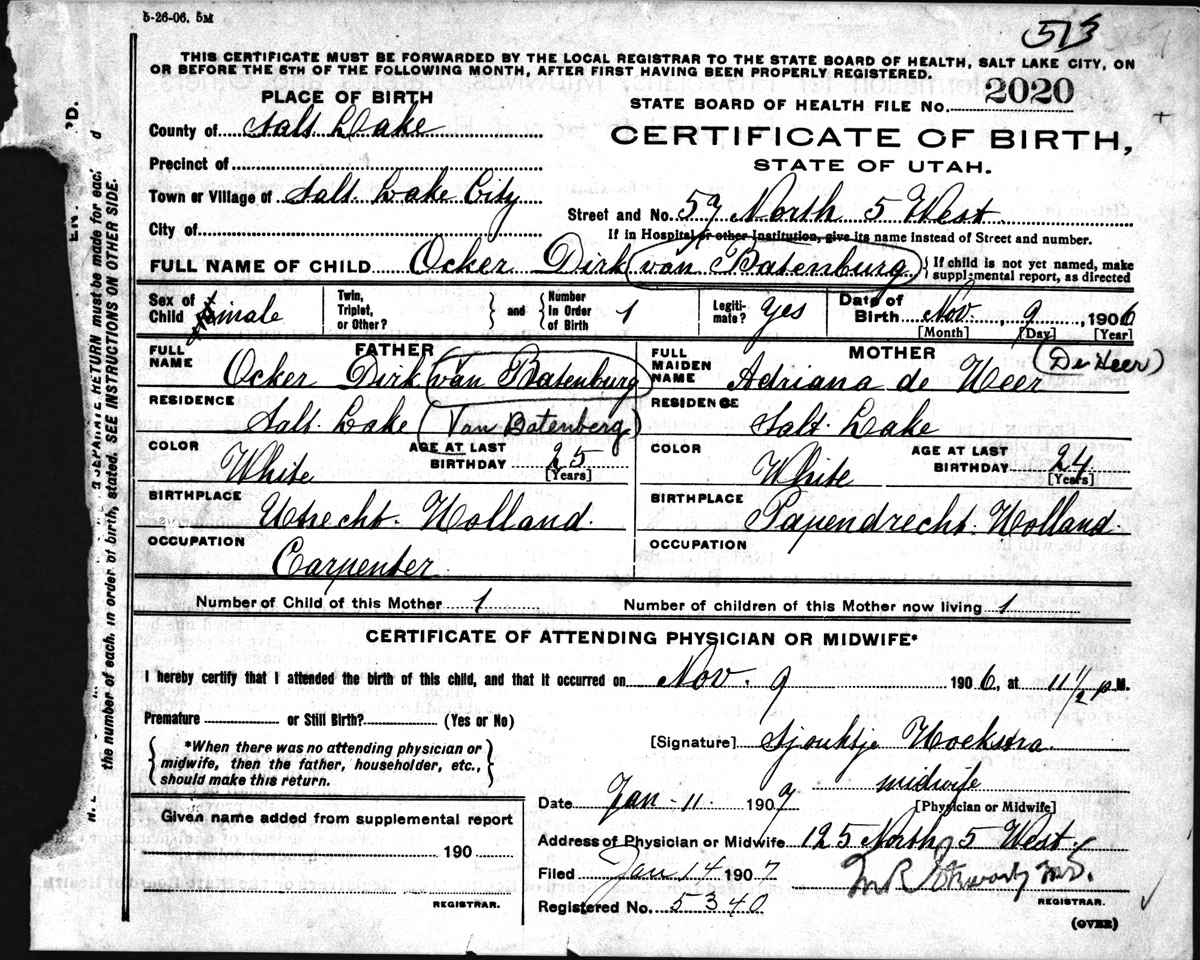 5-26-06. 5M
513
THIS CERTIFICATE MUST BE FORWARDED BY THE LOCAL REGISTRAR TO THE STATE BOARD OF HEALTH, SALT LAKE CITY, ON
OR BEFORE THE 5TH OF THE FOLLOWING MONTH, AFTER FIRST HAVING BEEN PROPERLY REGISTERED.
PLACE OF BIRTH
STATE BOARD OF HEALTH FILE No. 2020
County of Salt Lake
CERTIFICATE OF BIRTH,
STATE OF UTAH.
Precinct of
Town or Village of Salt Lake City
Street and No. 57 North 5 West
City of
If in Hospital or other Institution, give its name instead of Street and number.
FULL NAME OF CHILD Ocker Dirk van Batenburg
{If child is not yet named, make
supplemental report, as directed
Sex of Child male
Twin, Triplet, or Other? } and { Number in Order of Birth 1
Legitimate? Yes
Date of Birth Nov. 9, 1906
[Month] [Day] [Year]
FATHER
FULL NAME Ocker Dirk van Batenburg
MOTHER
FULL MAIDEN NAME Adriana de Heer (De Heer)
RESIDENCE Salt Lake (Van Batenberg)
RESIDENCE Salt Lake
COLOR White
AGE AT LAST BIRTHDAY 25 [Years]
COLOR White
AGE AT LAST BIRTHDAY 24 [Years]
BIRTHPLACE Utrecht. Holland.
BIRTHPLACE Papendrecht. Holland.
OCCUPATION Carpenter
OCCUPATION
Number of Child of this Mother 1
Number of children of this Mother now living 1
CERTIFICATE OF ATTENDING PHYSICIAN OR MIDWIFE*
I hereby certify that I attended the birth of this child, and that it occurred on Nov. 9 1906, at 11 1/2 p M.
Premature or Still Birth? (Yes or No)
{*When there was no attending physician or
midwife, then the father, householder, etc.,
should make this return.}
[Signature] Sjoukje Hoekstra
midwife
[Physician or Midwife]
Date Jan - 11. 1907
Given name added from supplemental report
190
REGISTRAR.
Address of Physician or Midwife 125 North 5 West.
Filed Jan 14 1907
REGISTRAR.
Registered No. 5340
(OVER)
SEPARATE RETURN must be made for each
the number of each, in order of birth, stated. SEE INSTRUCTIONS ON OTHER SIDE.